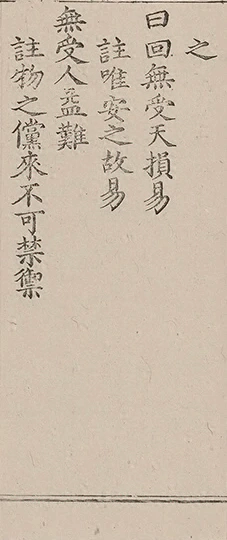 之
曰回無受天損易
註唯安之故易
無受人益難
註物之儻來不可禁禦